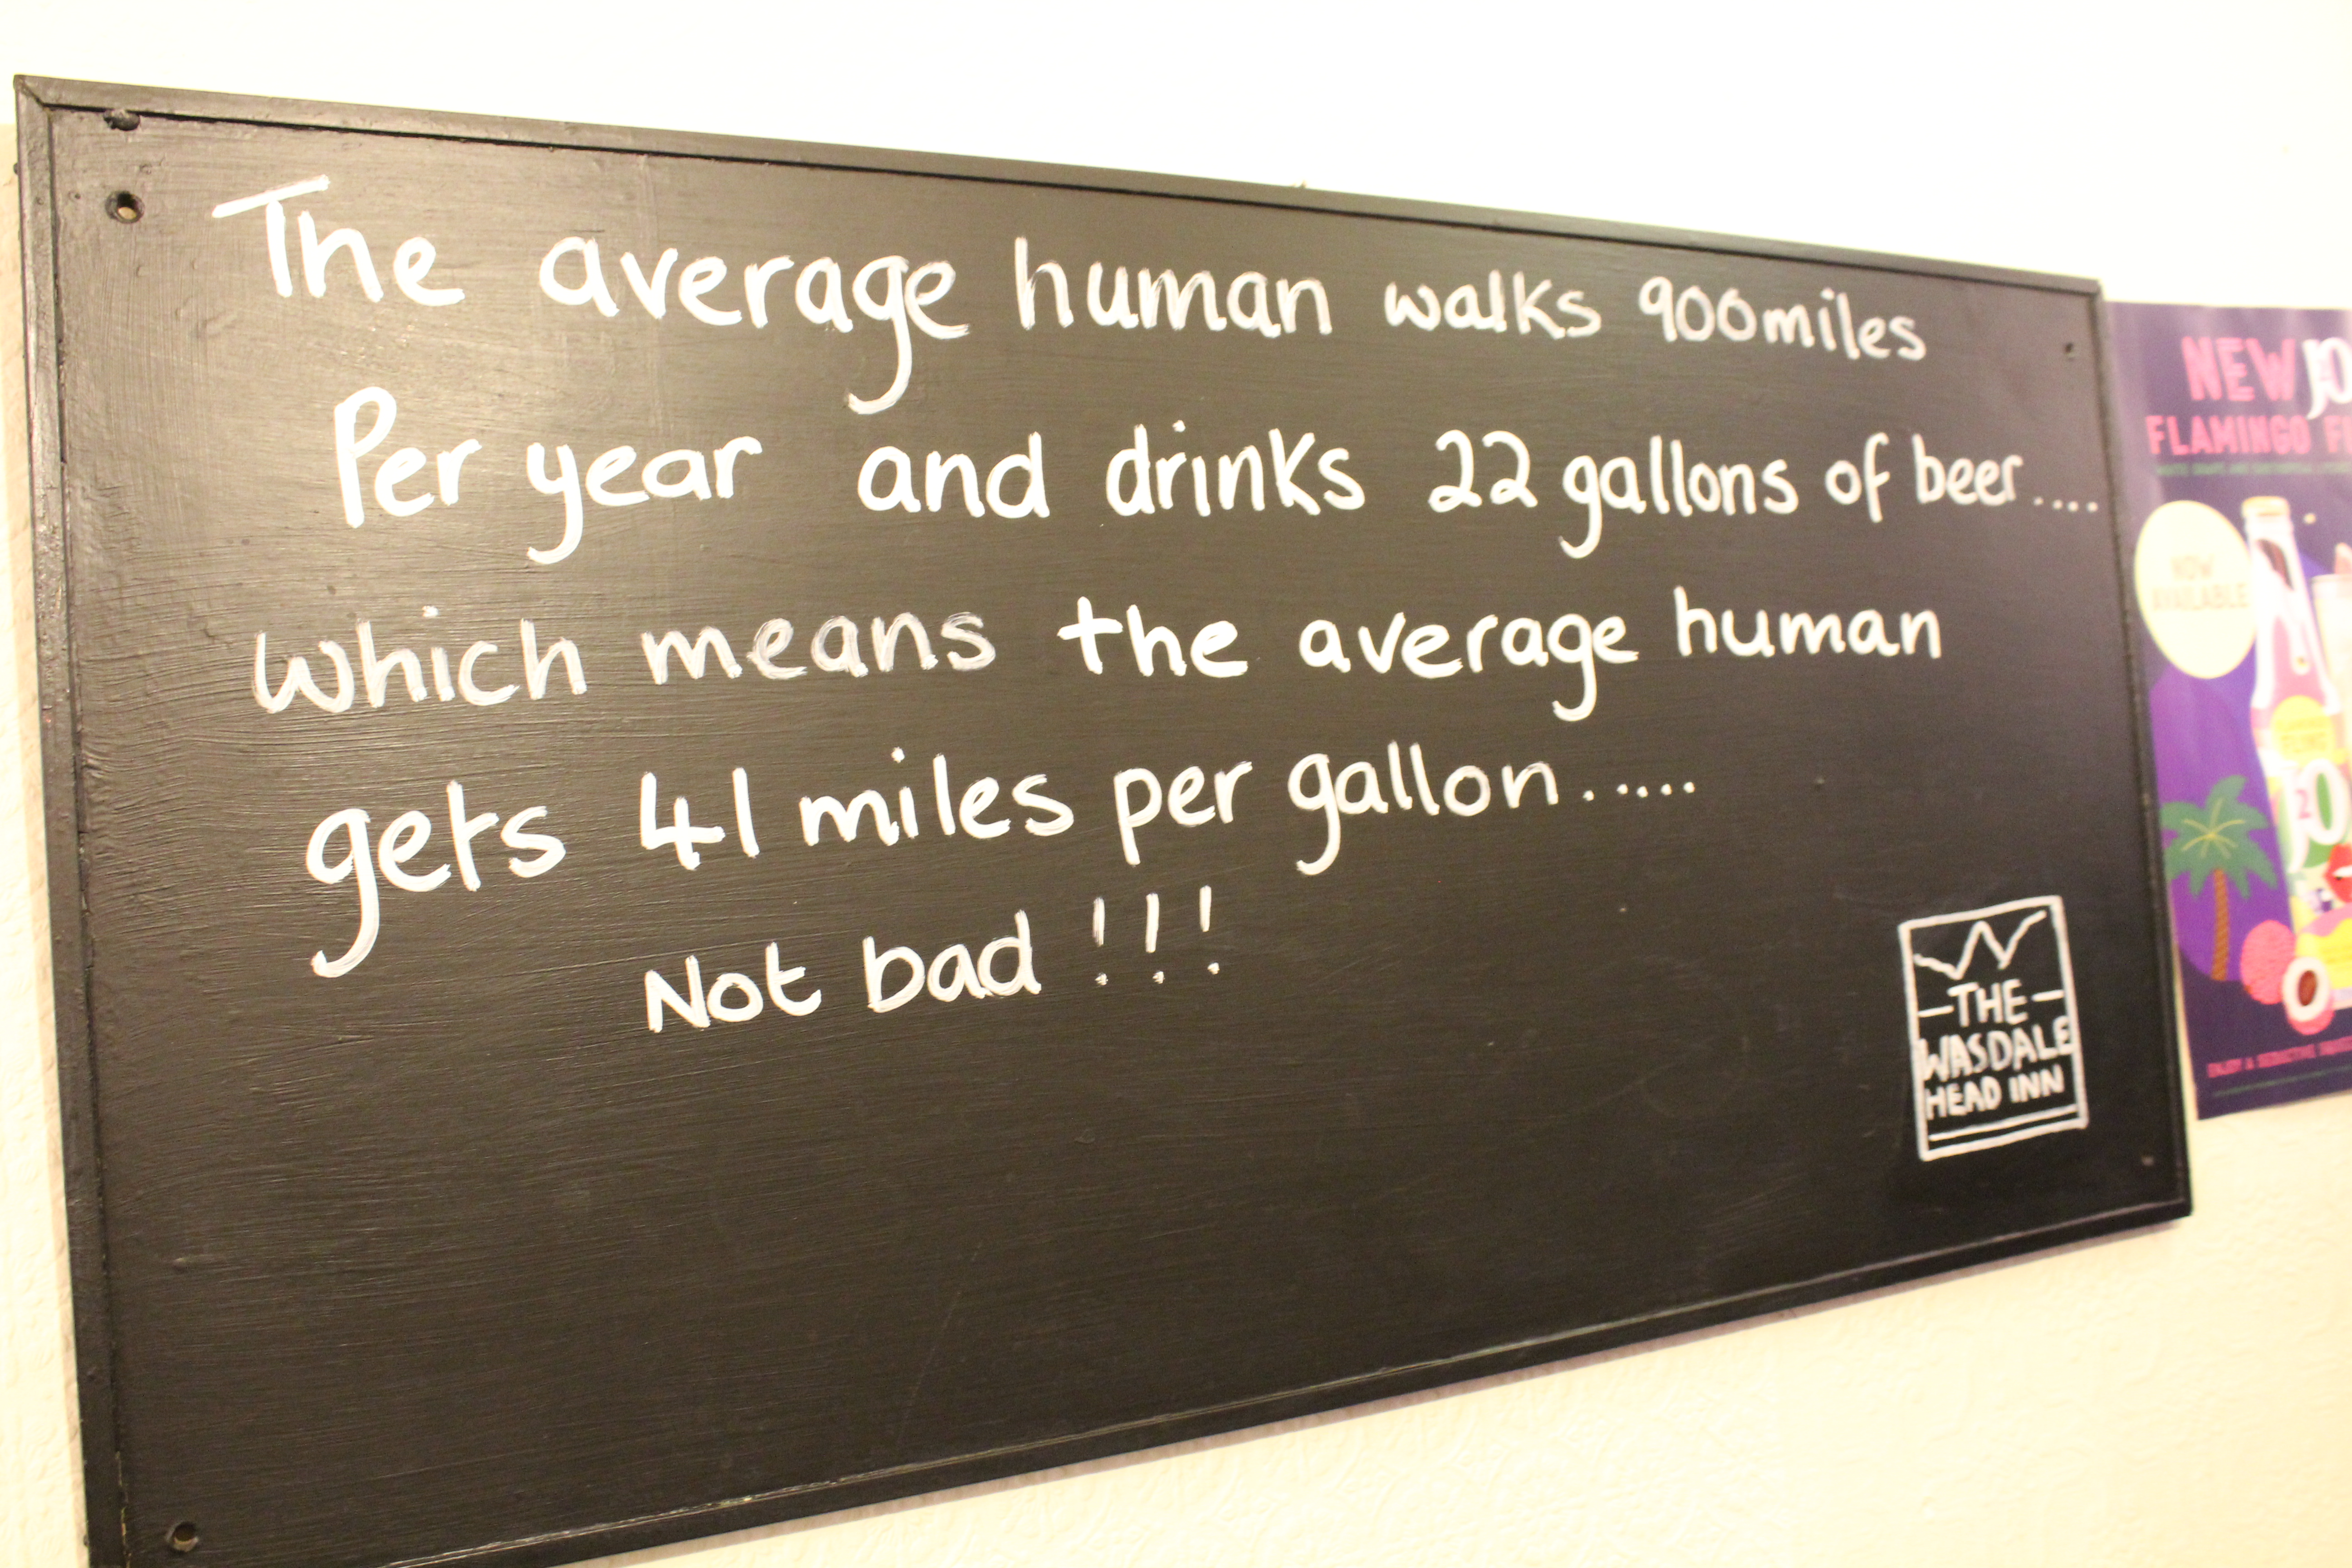 The average human walks 900miles
Per year and drinks 22 gallons of beer....
which means the average human
gets 41 miles per gallon.....
Not bad !!!
THE
WASDALE
HEAD INN
NEW
FLAMINGO
NOW
AVAILABLE
J2O
ENJOY A SEDUCTIVE